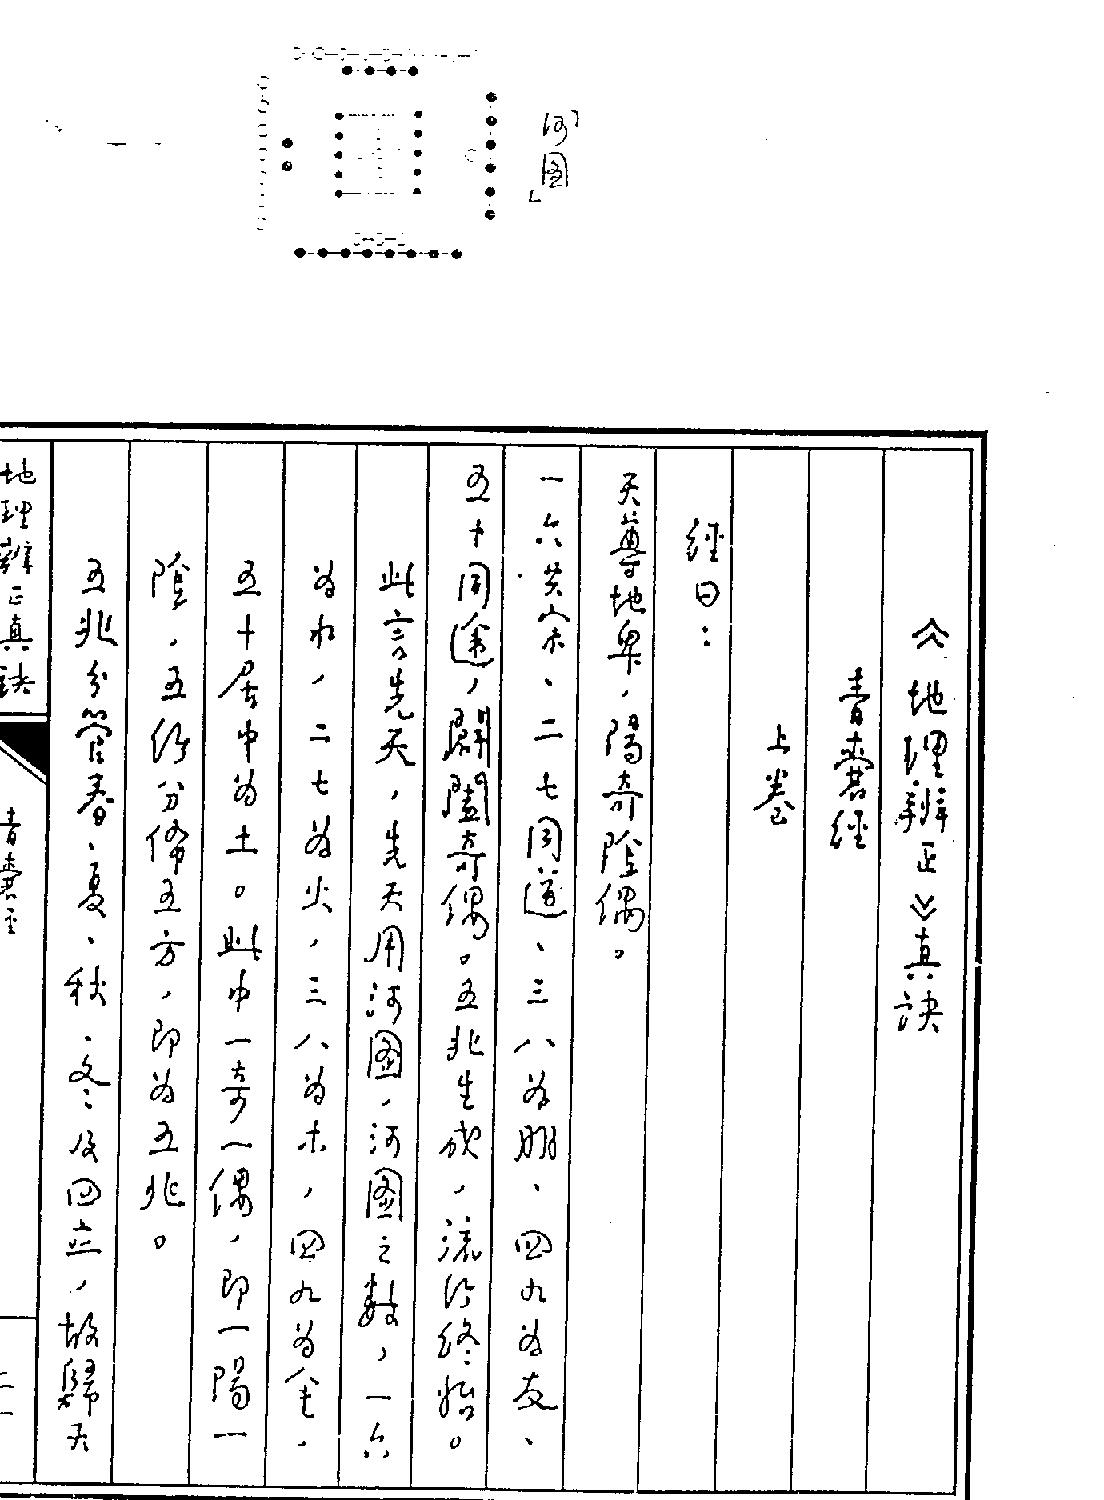 「河圖」
《地理辨正》真訣
青囊經
上卷
經曰：
天尊地卑，陽奇陰偶。
一六共宗、二七同道、三八為朋、四九為友、
五十同途，闢闔奇偶。五兆生成，流行終始。
此言先天，先天用河圖，河圖之數，一六
為水，二七為火，三八為木，四九為金，
五十居中為土。此中一奇一偶，即一陽一
陰，五行分佈五方，即為五兆。
五兆分管春、夏、秋、冬及四立，故歸天
地理辨正真訣
青囊經